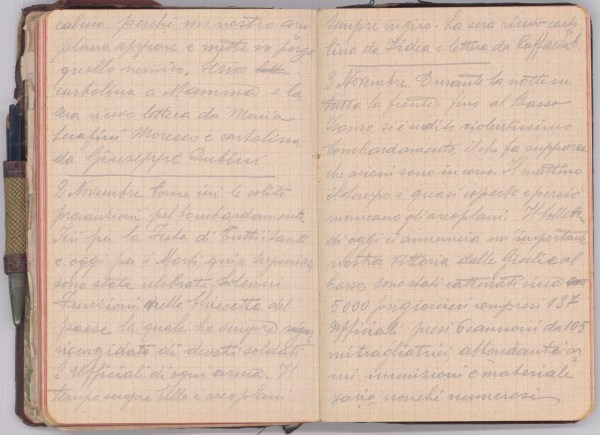 calmo perchè un nostro aero
plano appare e mette in fuga
quello nemico. Scrivo
cartolina a Mammina e la
sera ricevo lettera da Maria
Serafini Moresco e cartolina
da Giuseppe Dubini
2 Novembre Come ieri le solite
precauzioni pel bombardamento.
Ieri per la Festa di Tutti i Santi
e oggi per i Morti
sono state celebrate Solenni
Funzioni nella Chiesetta del
paese la quale ha sempre
rigurgitato di devoti soldati
e Ufficiali di ogni arma. Il
tempo sempre bello e areoplani
sempre in giro. La sera ricevo carto
lina da Lidea e lettera da Raffaela
3 Novembre Durante la notte su
tutto la fronte fino al Basso
Isonzo, si è udito violentissimo
bombardamento, il che fa supporre
che azioni sono in corso. Il mattino
il tempo è quasi coperto e perciò
mancano di areoplani. Il bollett.
di oggi ci annuncia un'importante
nostra vittoria dalle Giulie al
basso, sono stati catturati circa
5000 prigionieri compresi 137
Ufficiali presi 6 cannoni da 105
mitragliatrici abbondante ar
mi munizioni e materiale
vario, nonchè numerosi